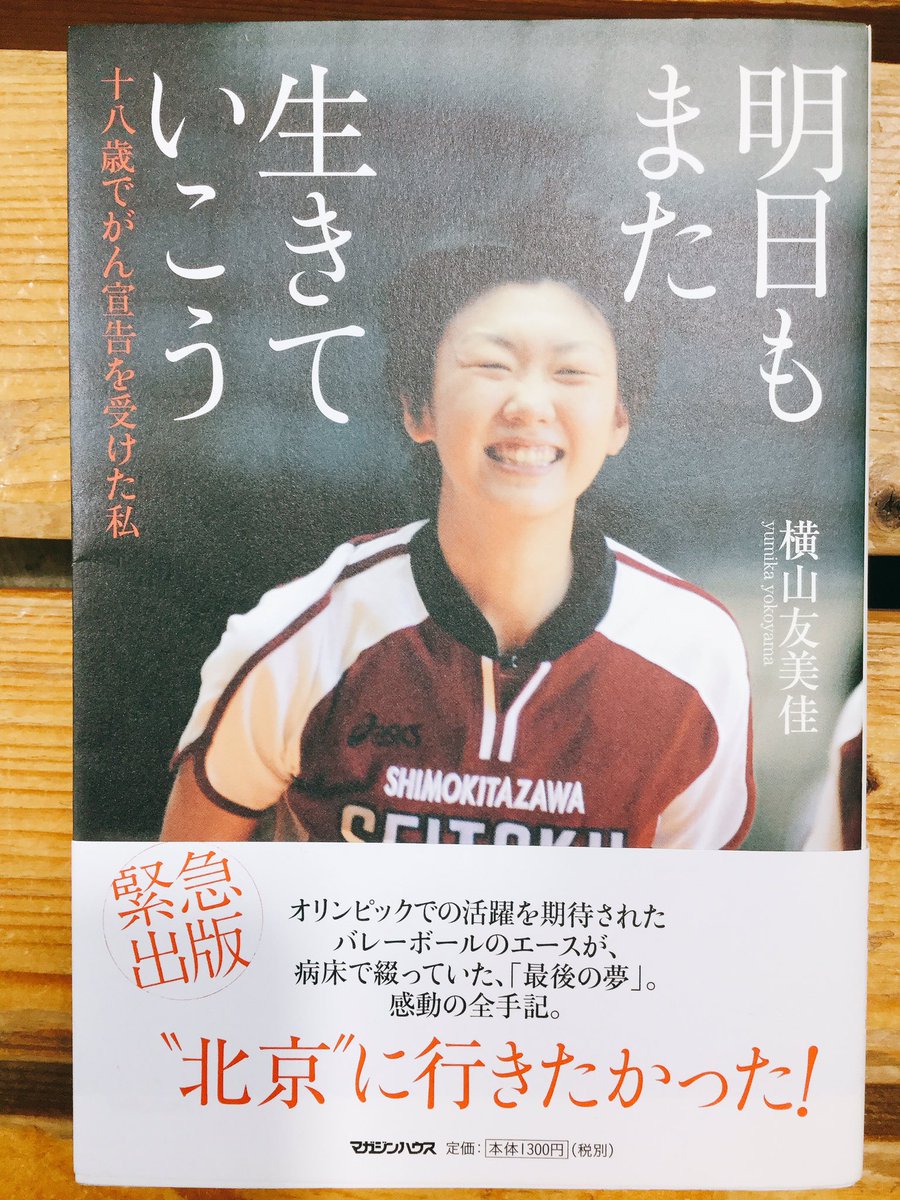 明日も
また
生きて
いこう
十八歳でがん宣告を受けた私
横山友美佳
yumika yokoyama
asics
SHIMOKITAZAWA
SEITOKU
緊急
出版
オリンピックでの活躍を期待された
バレーボールのエースが、
病床で綴っていた、「最後の夢」。
感動の全手記。
〝北京〟に行きたかった!
マガジンハウス 定価:本体1300円(税別)